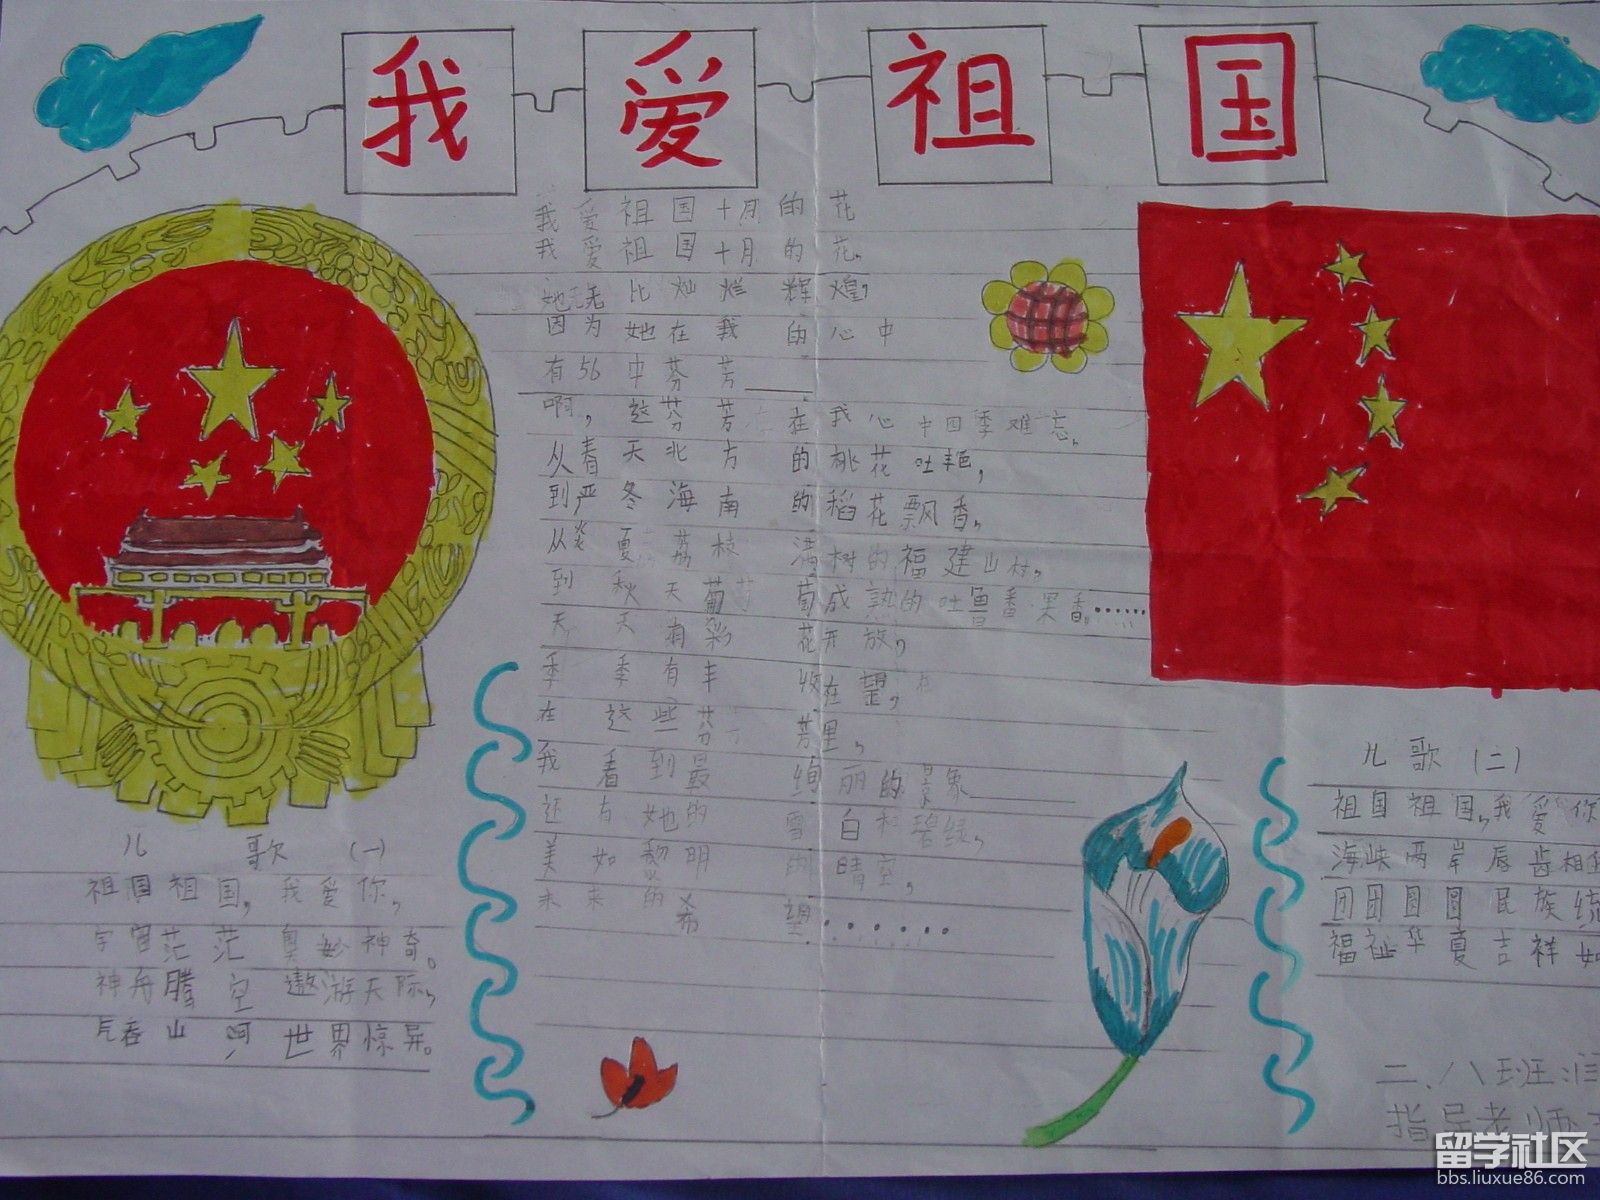 我爱祖国
我爱祖国十月的花
我爱祖国十月的花,
她无比灿烂辉煌,
因为她在我的心中
有56中芬芳——
啊,这芬芳在我心中四季难忘,
从春天北方的桃花吐艳,
到严冬海南的稻花飘香,
从炎夏荔枝满树的福建山村,
到秋天葡萄成熟的吐鲁番果香……
天天有彩花开放,
季季有丰收在望,
在这些芬芳里,
我看到最绚丽的景象——
还有她的雪白和碧绿,
美如黎明的晴空,
未来的希望……
儿歌(一)
祖国祖国,我爱你,
宇宙茫茫奥妙神奇。
神舟腾空遨游天际,
气吞山河世界惊异。
儿歌(二)
祖国祖国,我爱你
海峡两岸唇齿相
团团圆圆民族统
福祉华夏吉祥如
二、八班
指导老师
留学社区
bbs.liuxue86.com